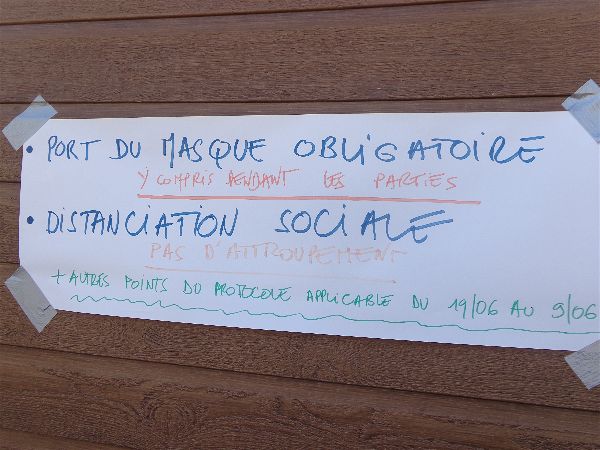 • PORT DU MASQUE OBLIGATOIRE
Y COMPRIS PENDANT LES PARTIES
• DISTANCIATION SOCIALE
PAS D'ATTROUPEMENT
+ AUTRES POINTS DU PROTOCOLE APPLICABLE DU 19/06 AU 9/06